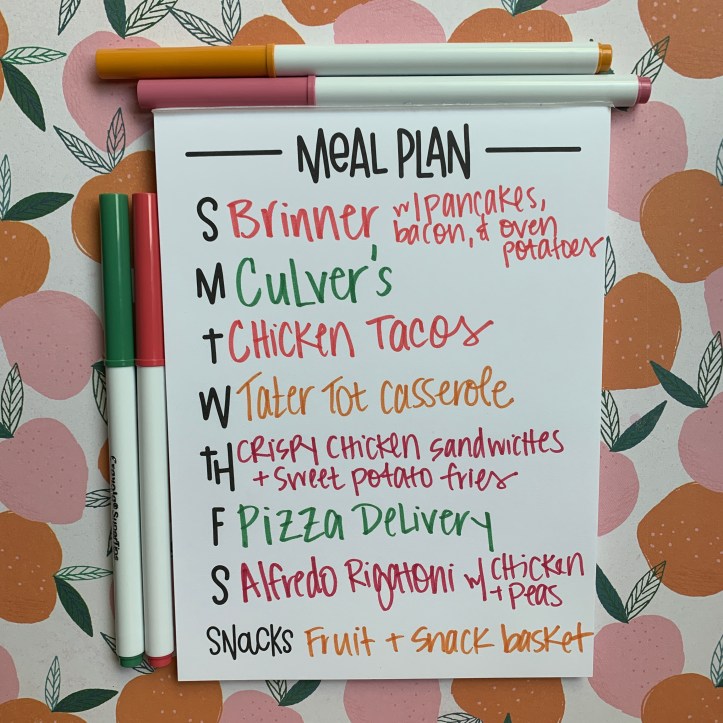 MEAL PLAN
S Brinner w/ pancakes,
bacon, & oven
potatoes
M Culver's
T Chicken Tacos
W Tater Tot Casserole
TH Crispy Chicken Sandwiches
+ Sweet potato fries
F Pizza Delivery
S Alfredo Rigatoni w/ Chicken
+ Peas
SNACKS Fruit + Snack basket
Crayola SuperTips